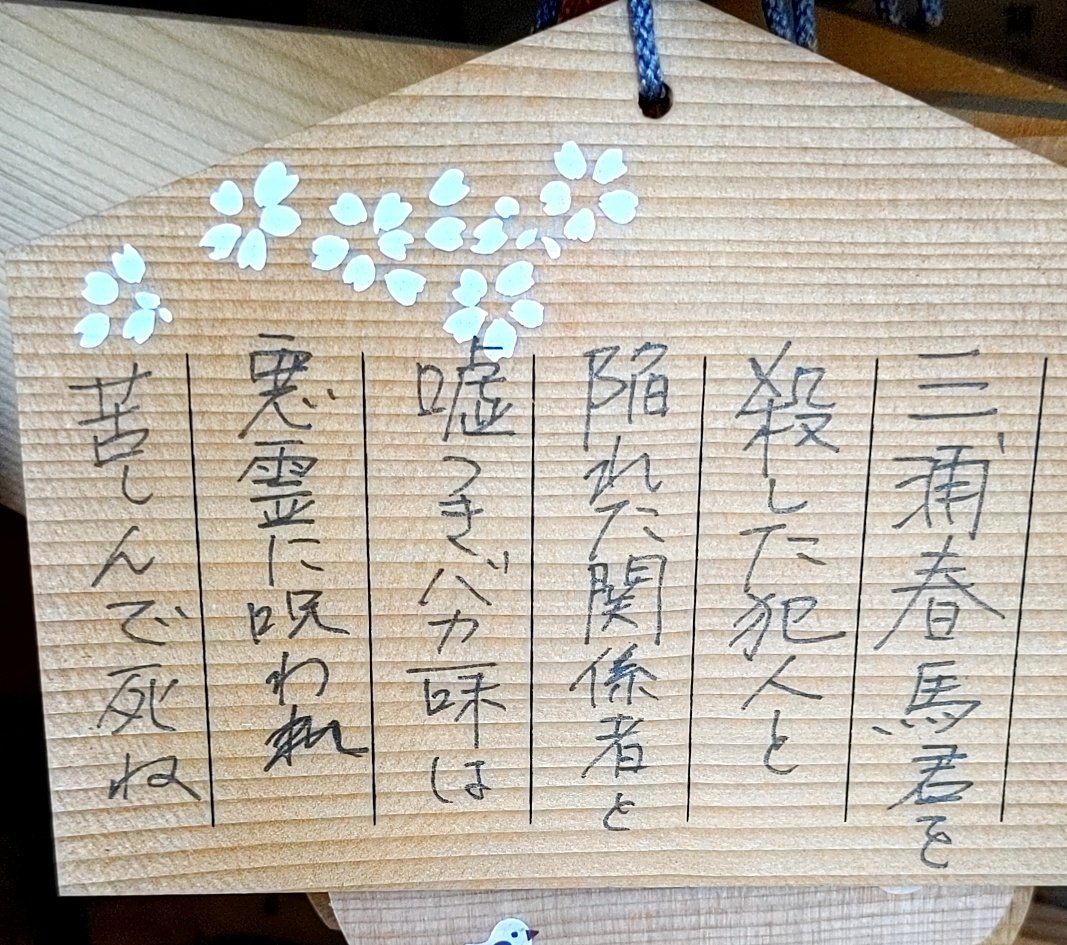 三浦春馬君を
殺した犯人と
陥れた関係者と
嘘つきバカ一味は
悪霊に呪われ
苦しんで死ね